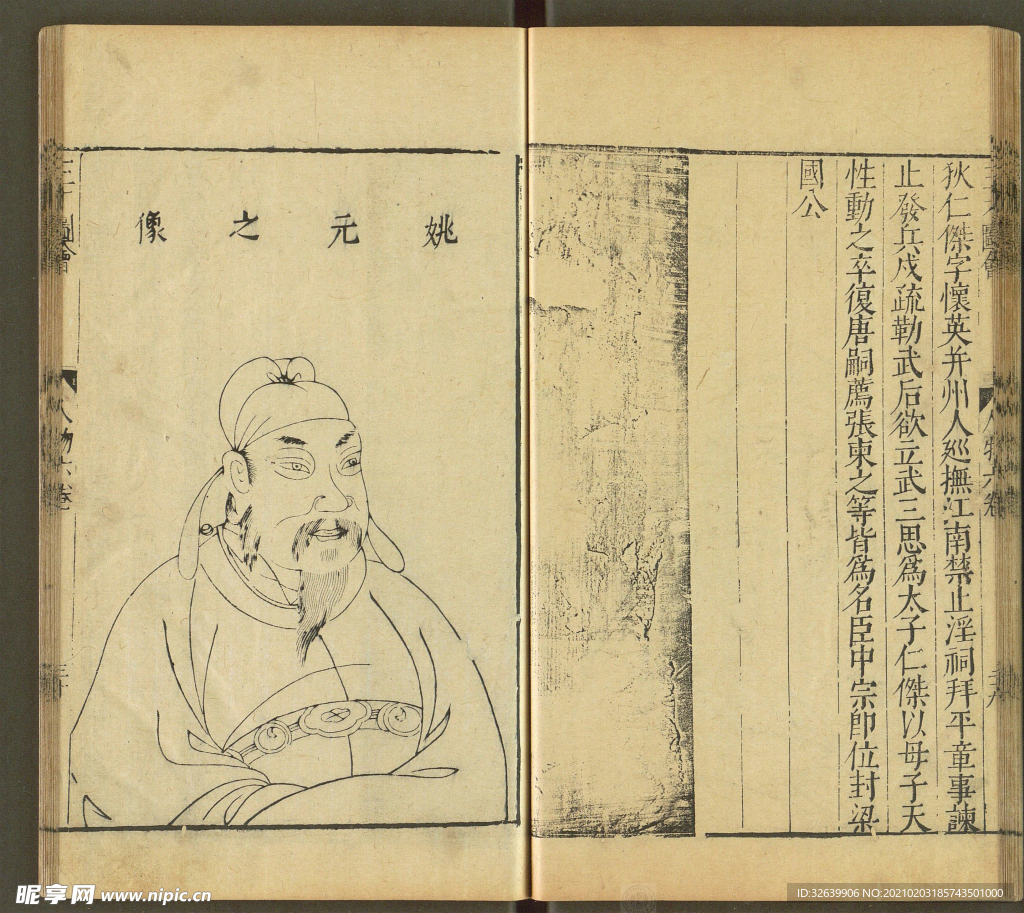 狄仁傑字懷英并州人廵撫江南禁止淫祠拜平章事諫
止發兵戍疏勒武后欲立武三思爲太子仁傑以母子天
性動之卒復唐嗣薦張柬之等皆爲名臣中宗卽位封梁
國公
姚元之像
人物六卷
昵享网 www.nipic.cn
ID:32639906 NO:20210203185743501000